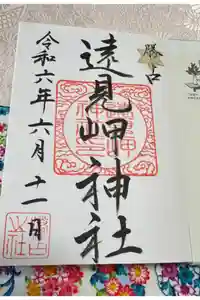 遠見岬神社
令和六年六月十一日